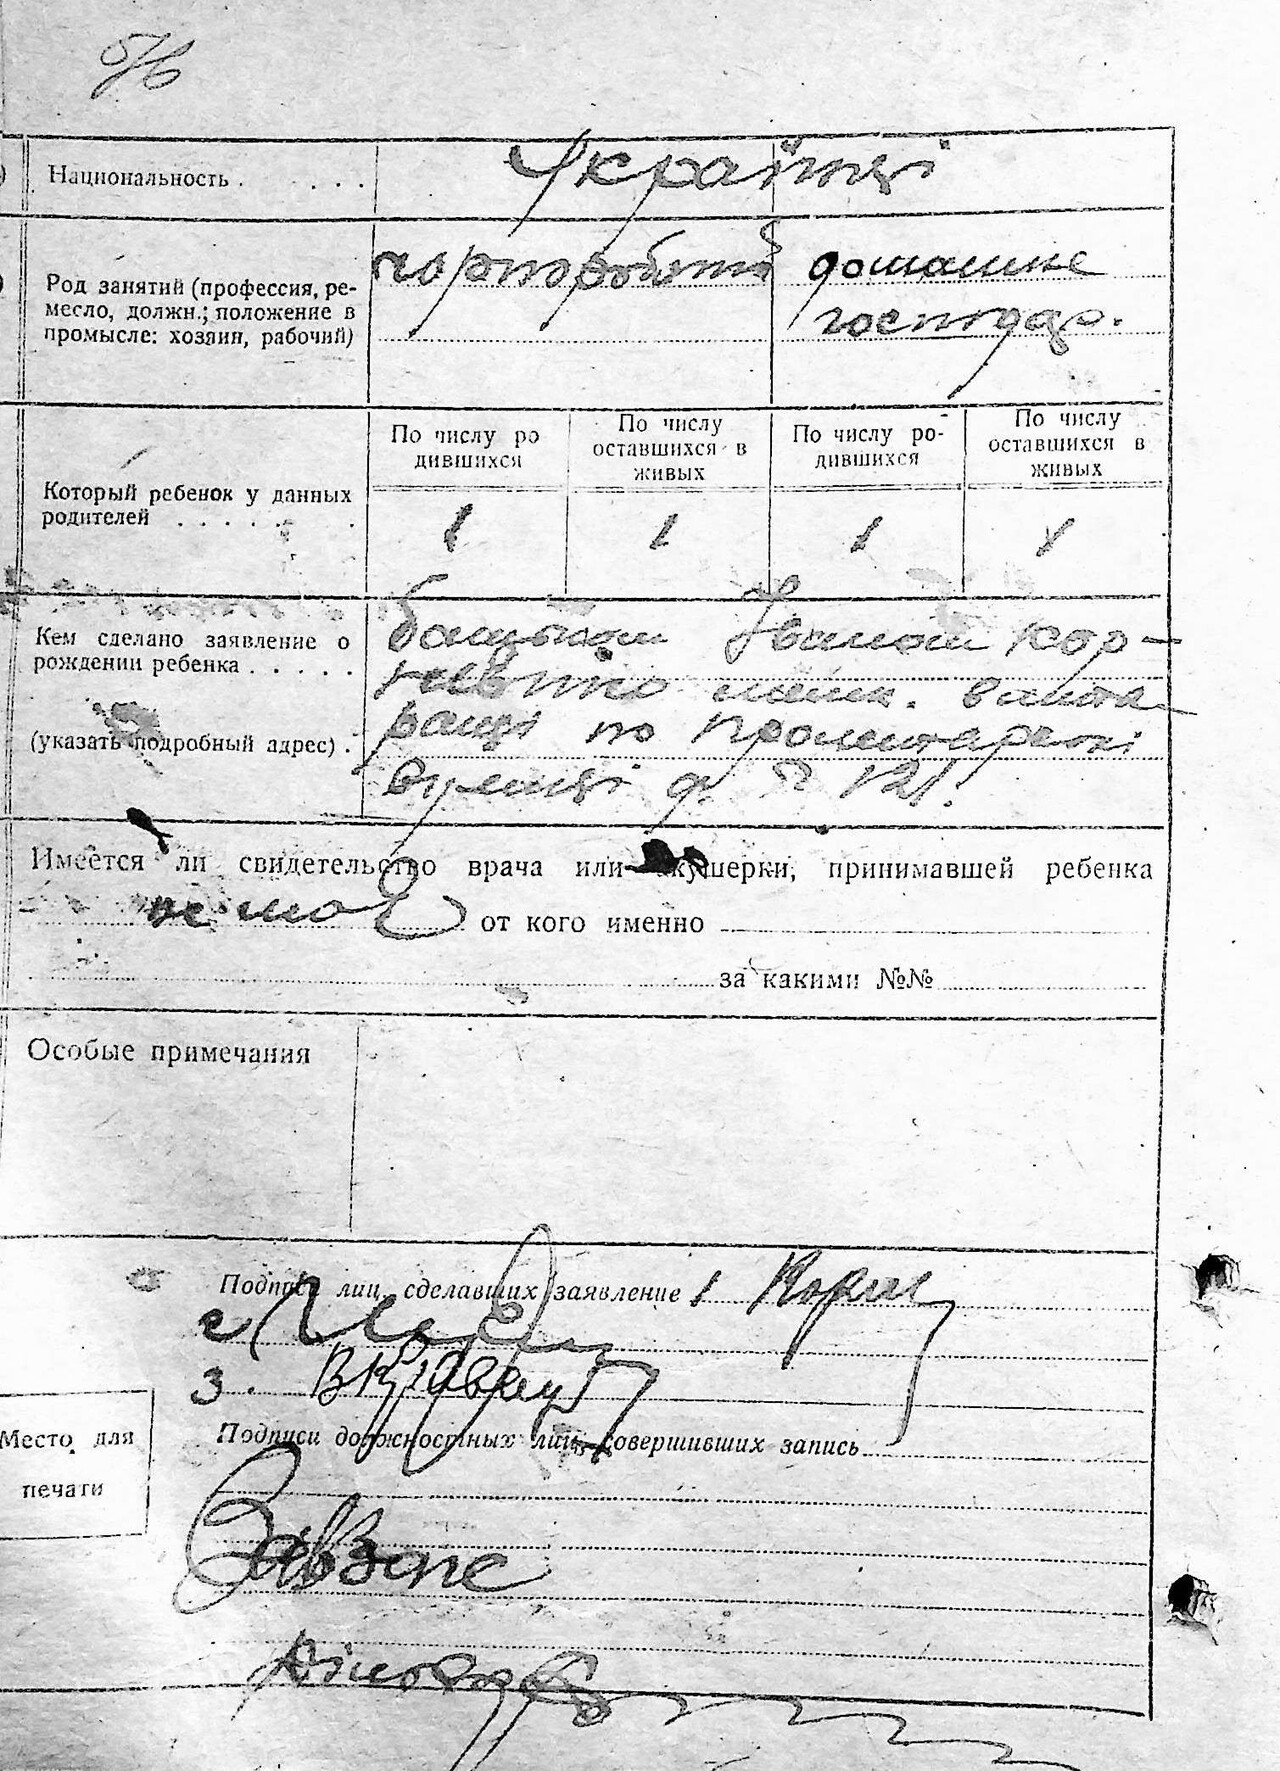 Национальность . . . . . Українці
Род занятий (профессия, ре-
месло, должн.; положение в
промысле: хозяин, рабочий)
чорноробочий домашнє
господар.
Который ребенок у данных
родителей . . . . . .
По числу ро
дившихся
По числу
оставшихся в
живых
По числу ро-
дившихся
По числу
оставшихся в
живых
1 1 1 1
Кем сделано заявление о
рождении ребенка . . . . .
(указать подробный адрес) .
батьком Іваном Кор-
мешк.
по Пролетарскі
вулиці д. № 121.
Имеется ли свидетельство врача или акушерки, принимавшей ребенка
немає от кого именно
за какими №№
Особые примечания
Подписи лиц, сделавших заявление 1 Корн
2
3.
Подписи должностных лиц, совершивших запись
Место для
печати
Завзапс